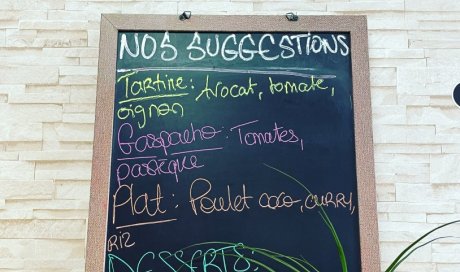 NOS SUGGESTIONS
Tartine : Avocat, tomate,
oignon
Gaspacho : Tomates,
pastèque
Plat : Poulet coco, curry,
RIZ
DESSERTS :